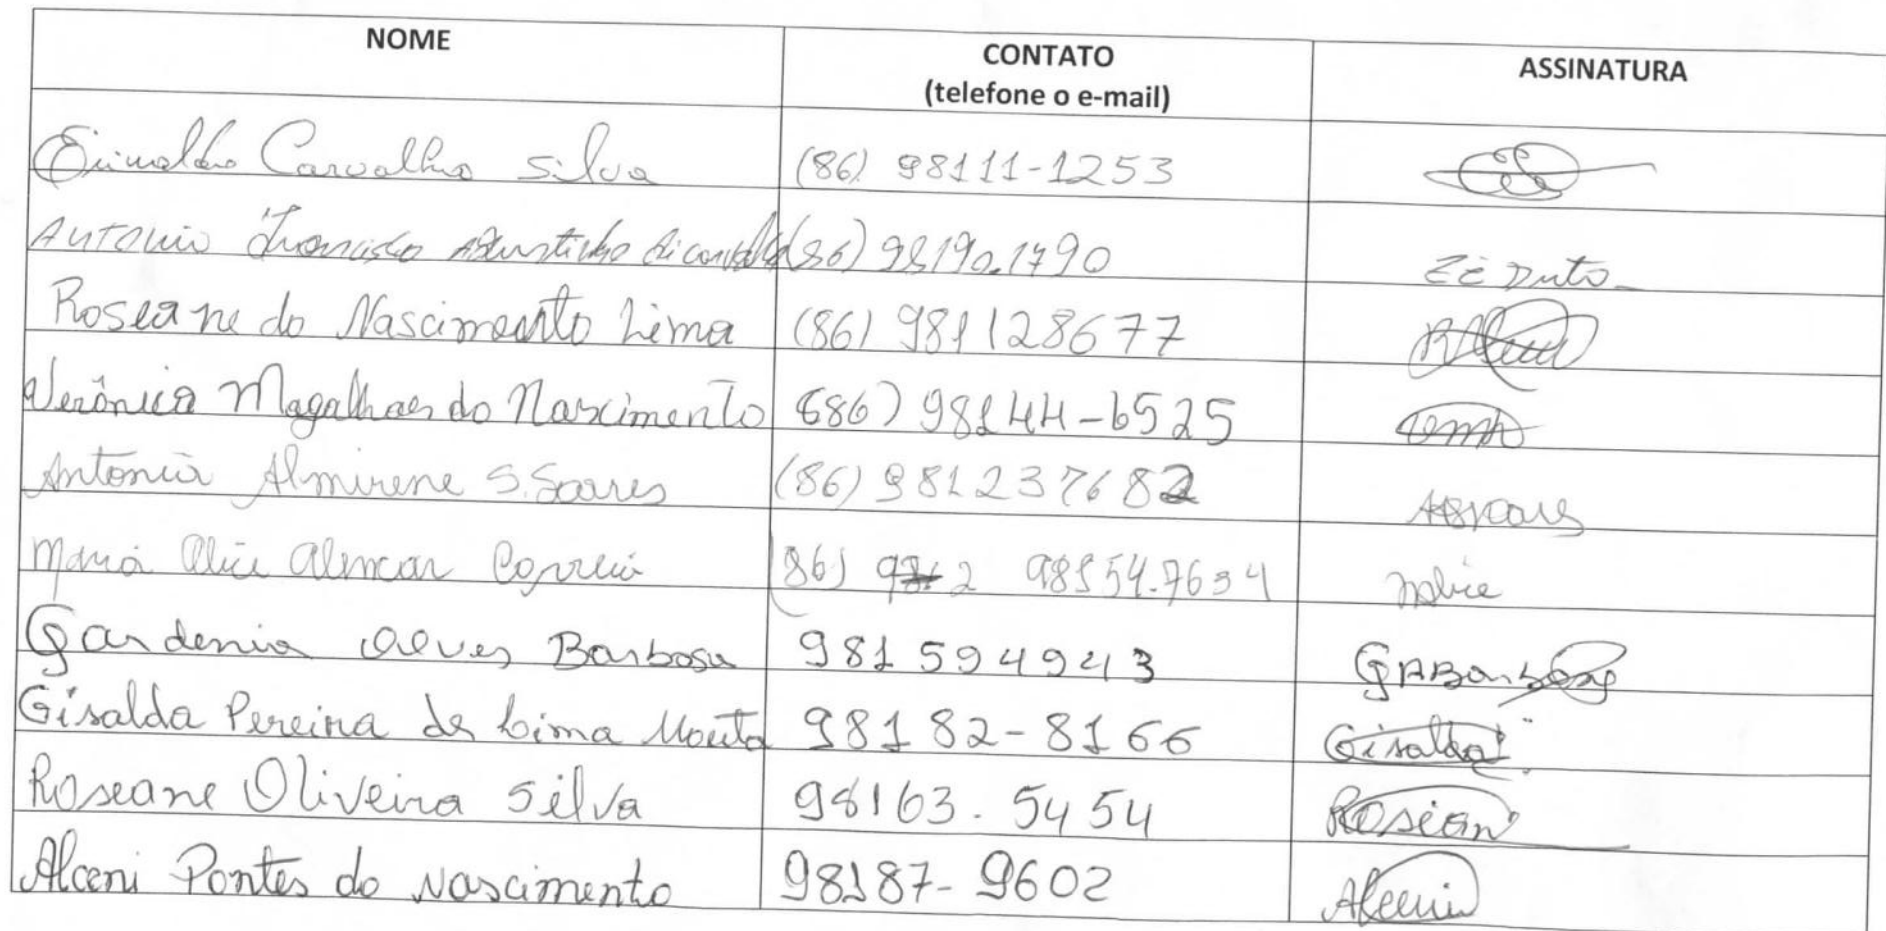 NOME CONTATO ASSINATURA
(telefone o e-mail)
Carvalho Silva (86) 98111-1253
Antonio Francisco (86) 98190.1790 Zé Duto
Roseane do Nascimento Lima (86) 981128677
Verônica Magalhaes do Nascimento (86) 98144-6525
Antonia Almirene S. Soares (86) 981237682
Maria Alice Alencar Correia (86) 98154.7634 Malice
Gardenia Alves Barbosa 981594943 GABarbosa
Gisalda Pereira de Lima Mouta 98182-8166 Gisalda
Roseane Oliveira Silva 98163.5454 Rosean
Alceni Pontes do Nascimento 98187-9602 Alceni